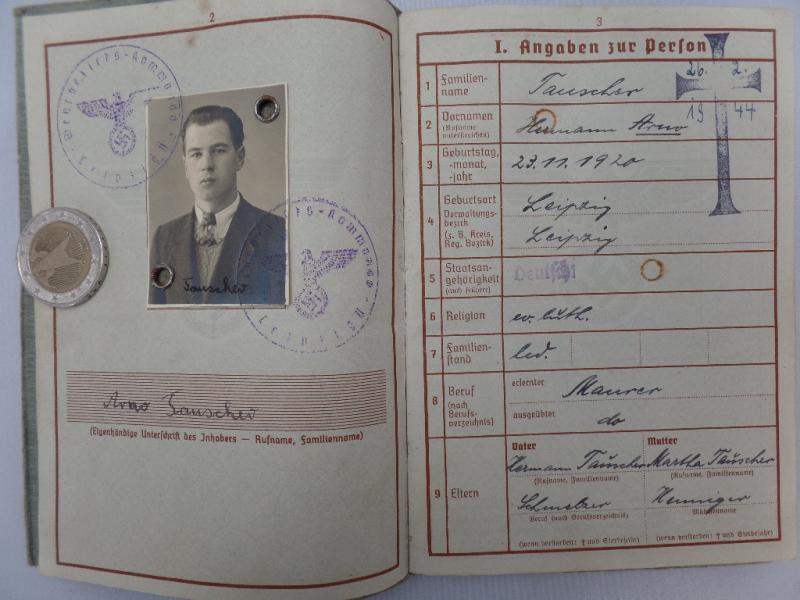 2
Wehrbezirks-Kommando
Leipzig
Tauscher
Wehrbezirks-Kommando
Leipzig
Arno Tauscher
(Eigenhändige Unterschrift des Inhabers — Rufname, Familienname)
3
I. Angaben zur Person
1 Familien-
name
Tauscher
26. 2.
19 44
2 Vornamen
(Rufname
unterstreichen)
Hermann Arno
3 Geburtstag,
-monat,
-jahr
23.11.1920
4 Geburtsort
Verwaltungs-
bezirk
(z. B. Kreis,
Reg. Bezirk)
Leipzig
Leipzig
5 Staatsan-
gehörigkeit
(auch frühere)
Deutsch!
6 Religion
ev. luth.
7 Familien-
stand
led.
8 Beruf
(nach
Berufs-
verzeichnis)
erlernter
Maurer
ausgeübter
do
9 Eltern
Vater Mutter
Hermann Tauscher Martha Tauscher
(Rufname, Familienname) (Rufname, Familienname)
Schmelzer Henniger
Beruf (nach Berufsverzeichnis) Mädchenname
(wenn verstorben: † und Sterbejahr) (wenn verstorben: † und Sterbejahr)